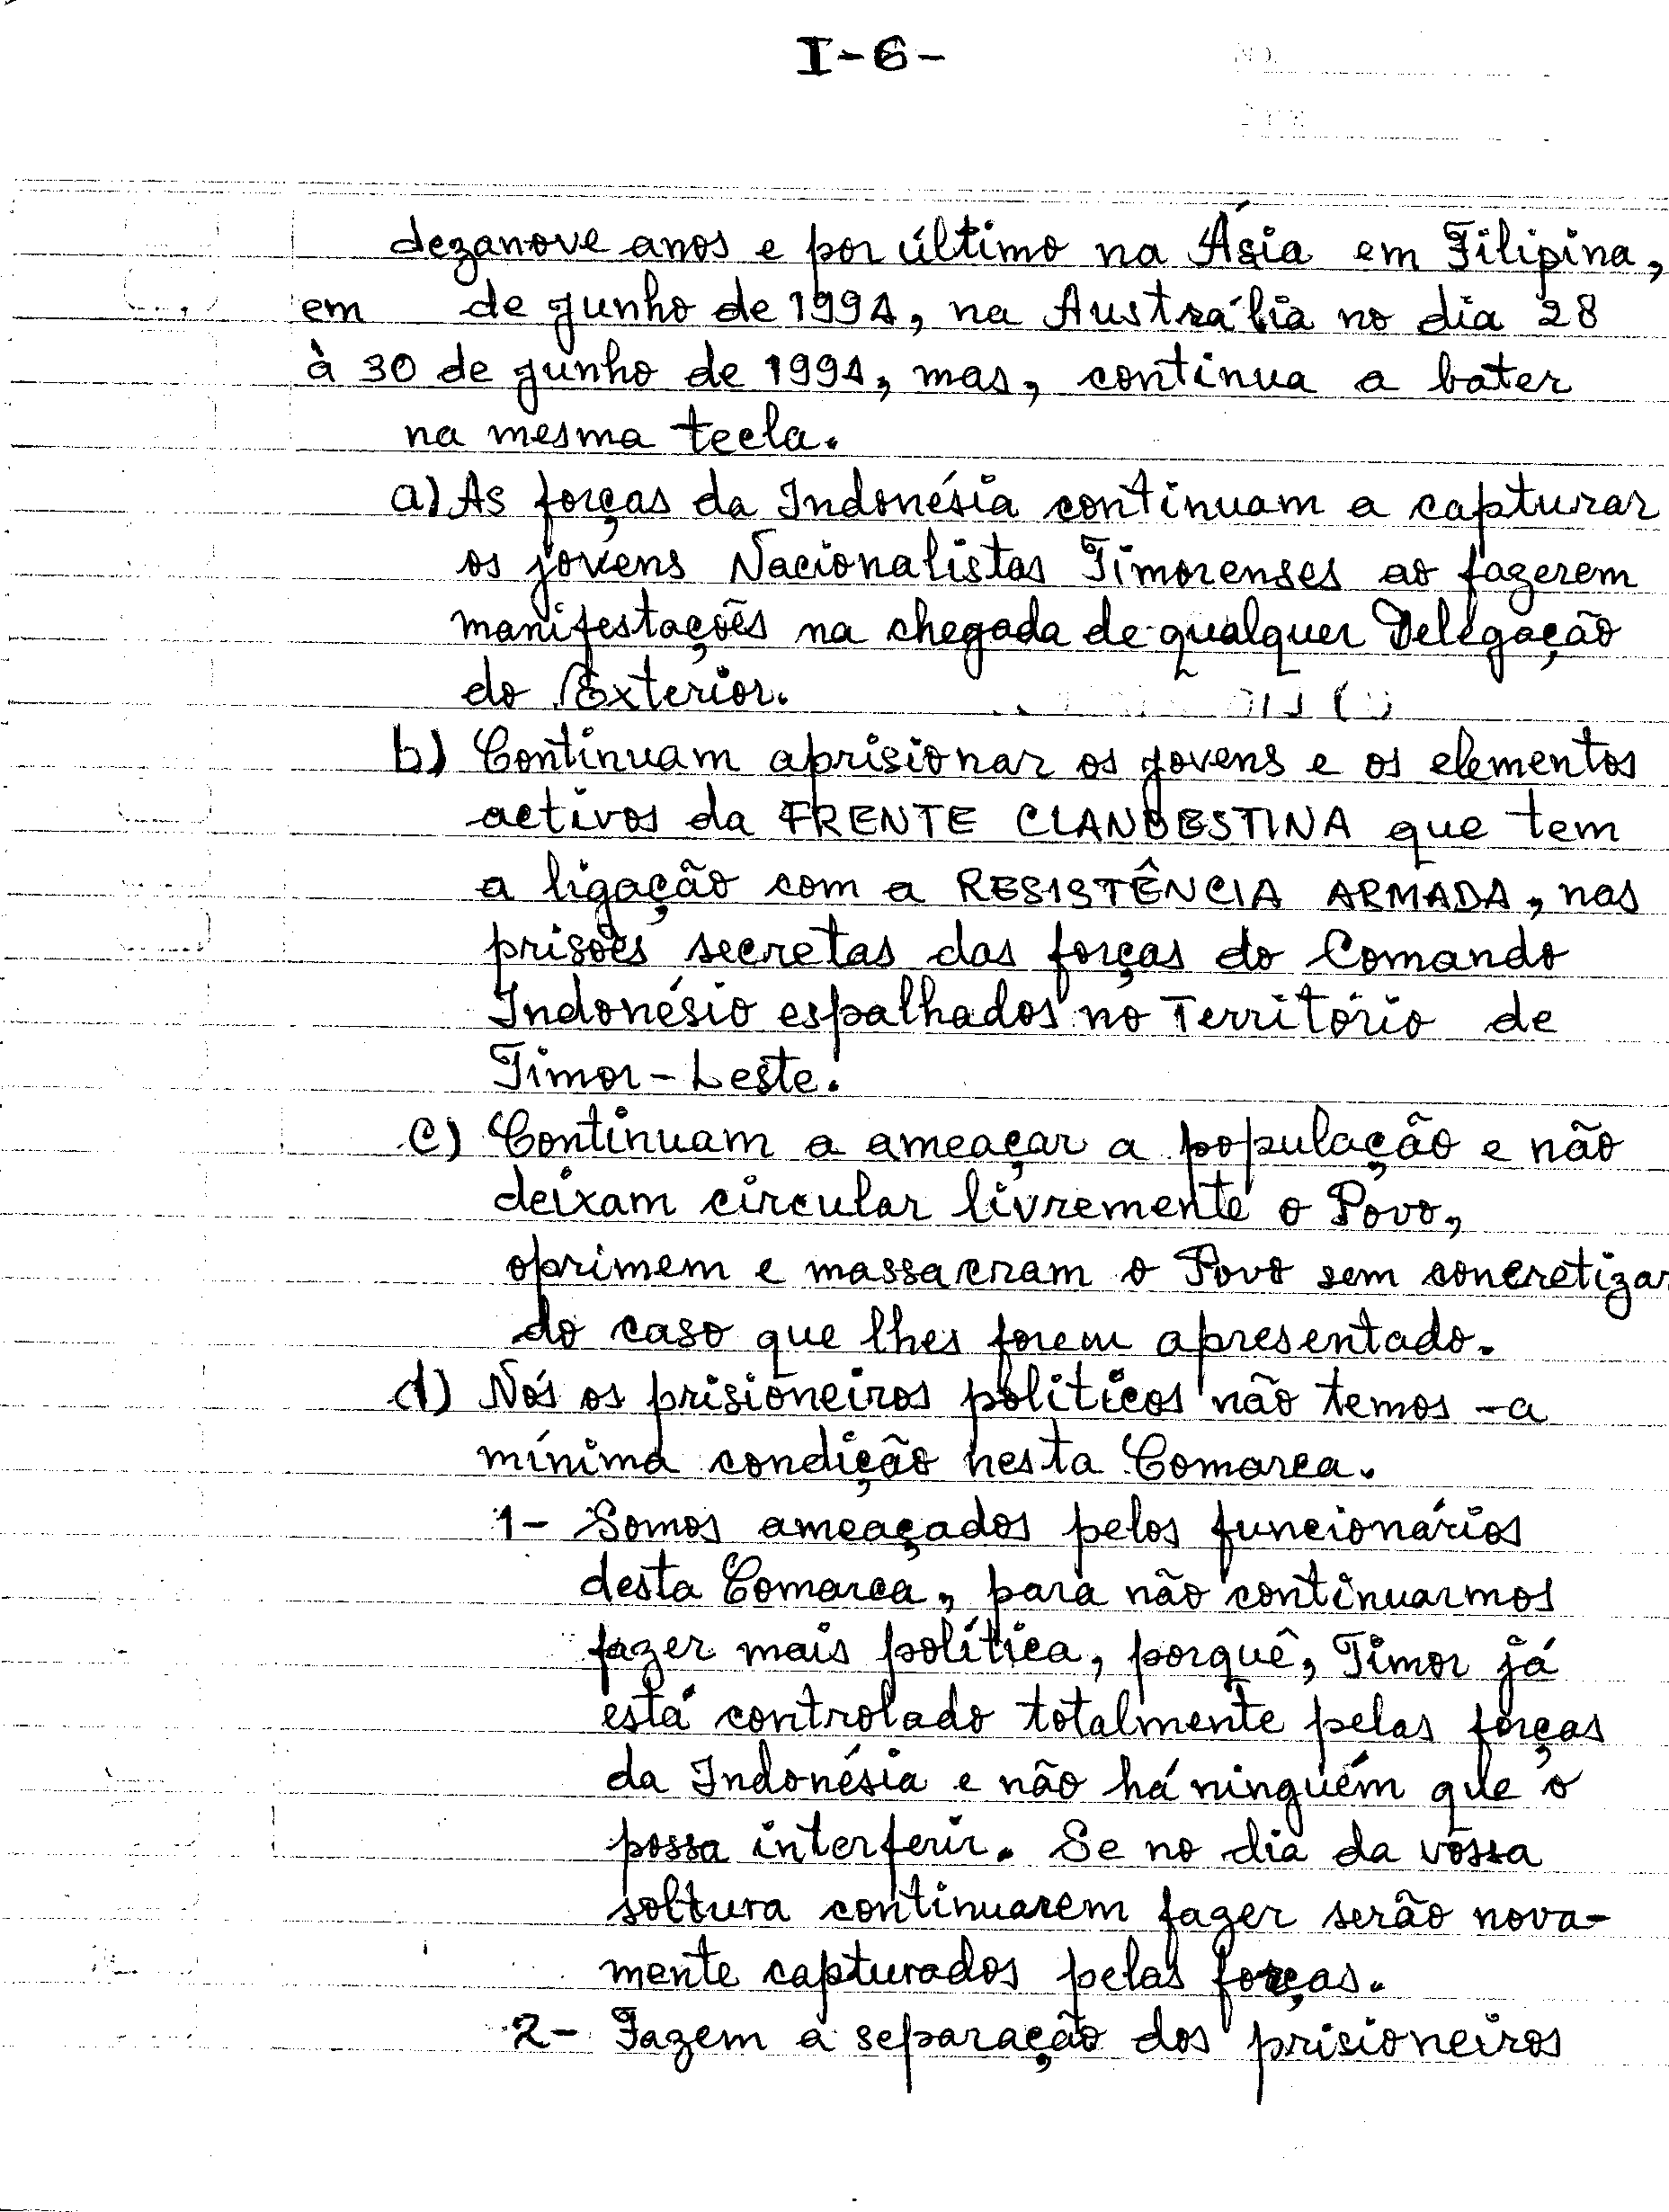 I-6-
NO.
dezanove anos e por último na Ásia em Filipina,
em de junho de 1994, na Austrália no dia 28
à 30 de junho de 1994, mas, continua a bater
na mesma tecla.
a) As forças da Indonésia continuam a capturar
os jovens Nacionalistas Timorenses ao fazerem
manifestações na chegada de qualquer Delegação
do Exterior.
b) Continuam aprisionar os jovens e os elementos
activos da FRENTE CLANDESTINA que tem
a ligação com a RESISTÊNCIA ARMADA, nas
prisões secretas das forças do Comando
Indonésio espalhados no Território de
Timor-Leste.
c) Continuam a ameaçar a população e não
deixam circular livremente o Povo,
oprimem e massacram o Povo sem concretizar
do caso que lhes forem apresentado.
d) Nós os prisioneiros políticos não temos -a
mínima condição nesta Comarca.
1- Somos ameaçados pelos funcionários
desta Comarca, para não continuarmos
fazer mais política, porquê, Timor já
está controlado totalmente pelas forças
da Indonésia e não há ninguém que o
possa interferir. Se no dia da vossa
soltura continuarem fazer serão nova-
mente capturados pelas forças.
2- Fazem a separação dos prisioneiros